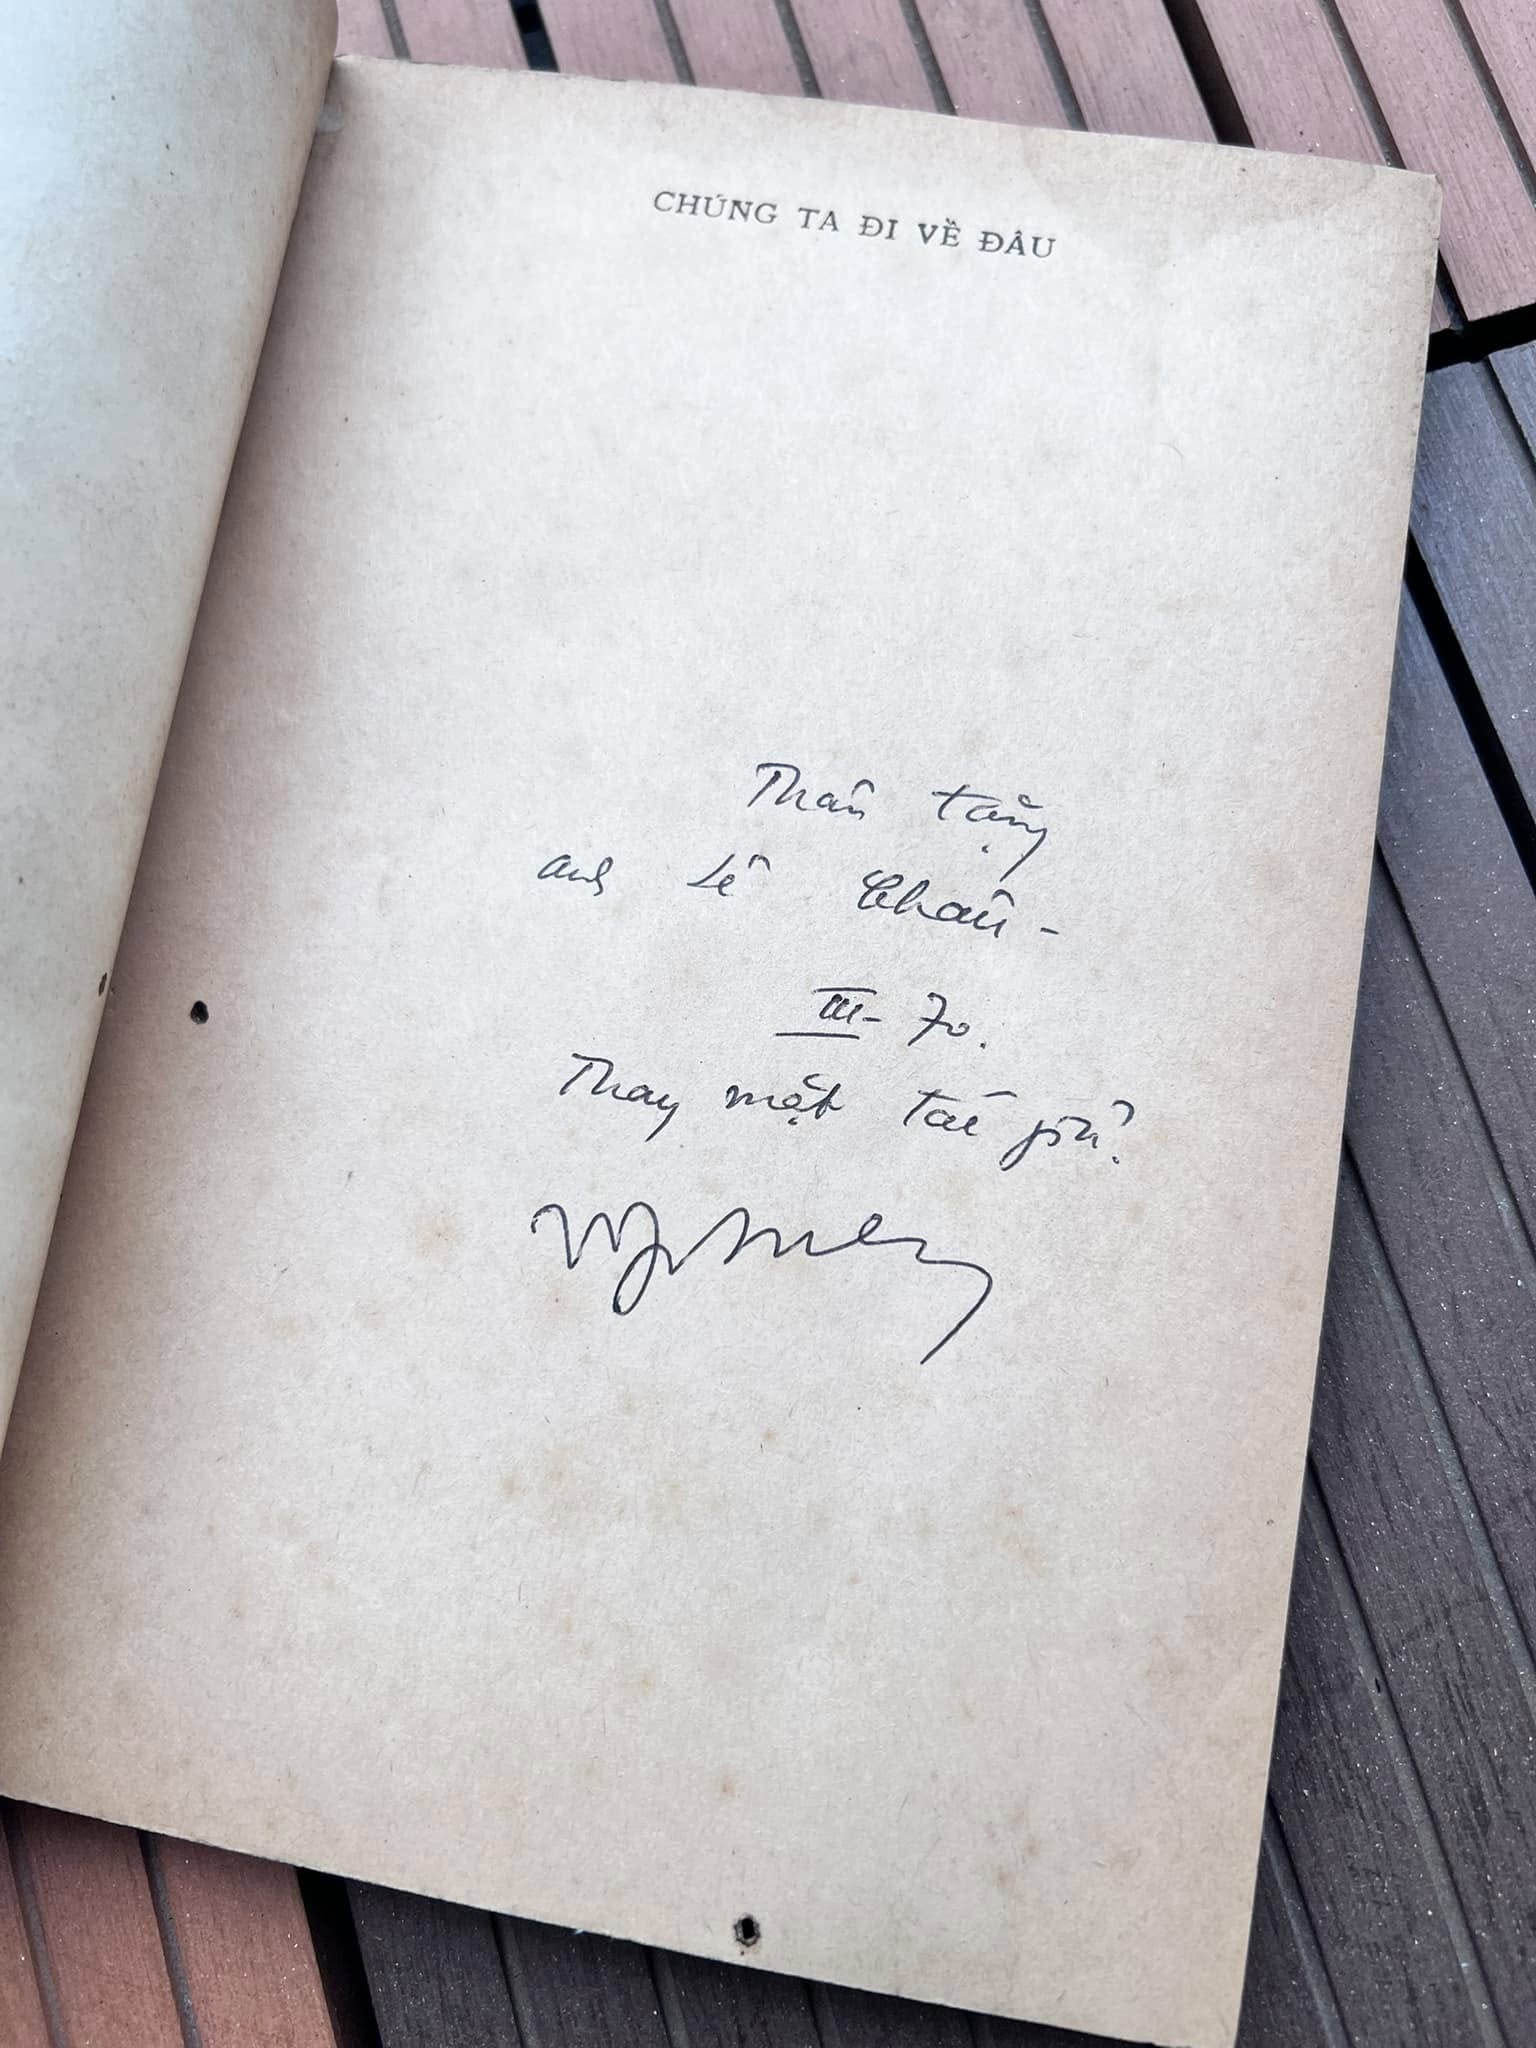 CHÚNG TA ĐI VỀ ĐÂU
Thân tặng
anh Lê Châu -
III - 70.
Thay mặt tác giả